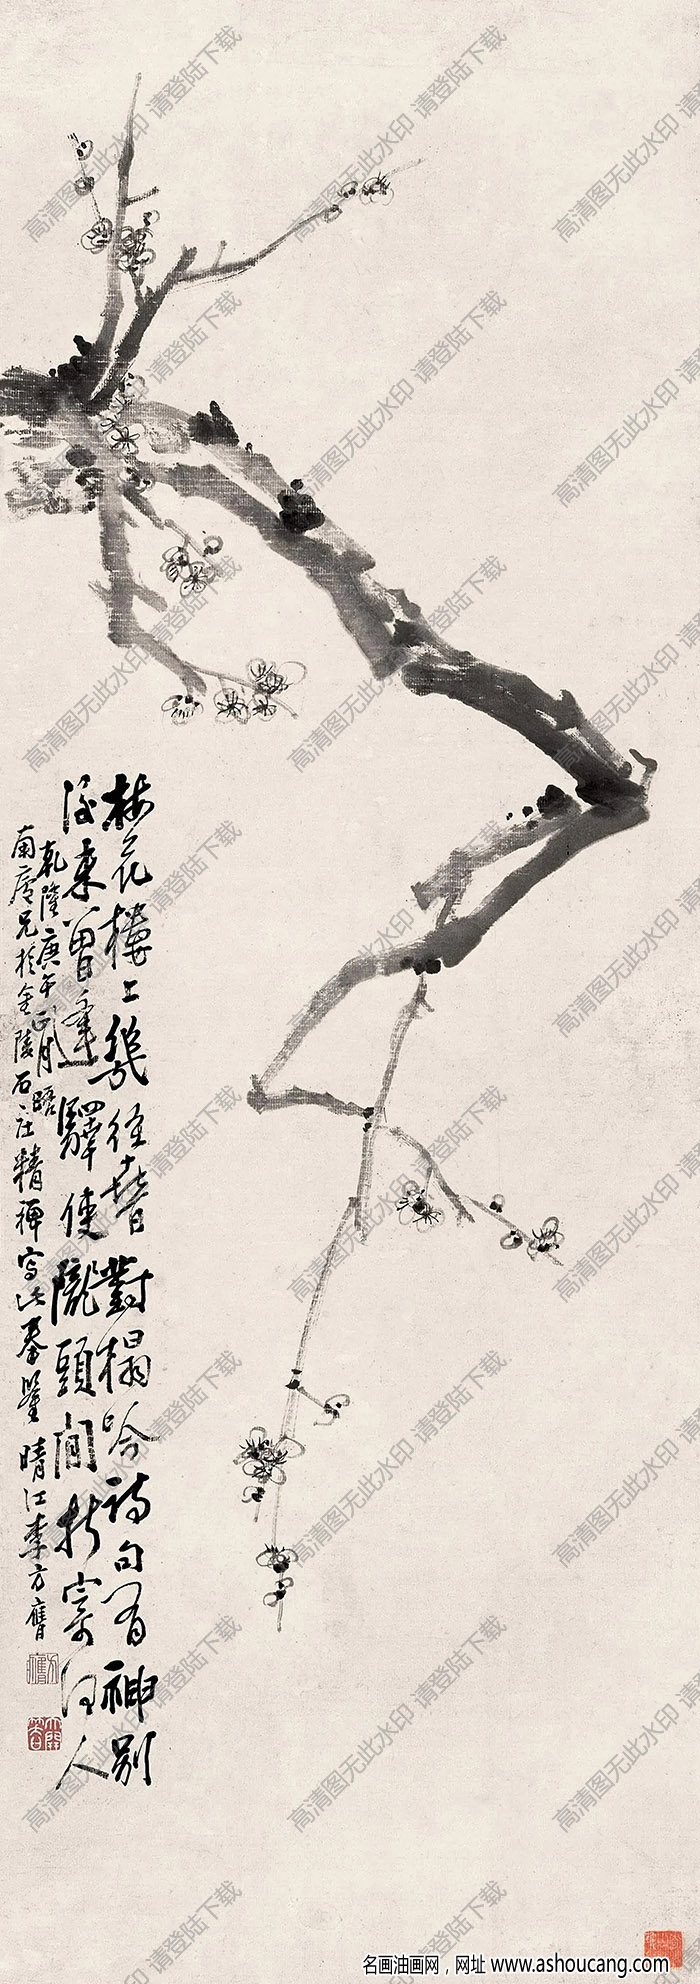 梅花樓上幾經春對榻吟詩句有神別
後東曾逢驛使隴頭閒折寄何人
乾隆庚午正月晤
南序兄於金陵石莊精禪寫此奉鑒 晴江李方膺
名画油画网，网址 www.ashoucang.com
高清图无此水印 请登陆下载